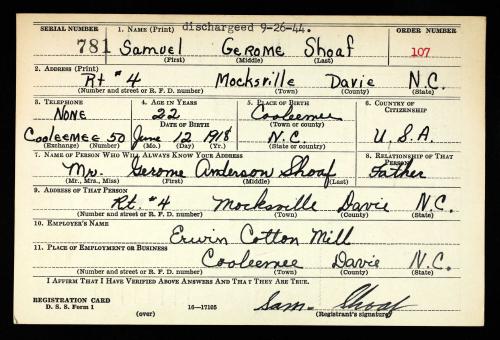 dischargeed 9-26-44.
SERIAL NUMBER 1. NAME (Print) ORDER NUMBER
781 Samuel Gerome Shoaf 107
(First) (Middle) (Last)
2. ADDRESS (Print)
Rt #4 Mocksville Davie N.C.
(Number and street or R. F. D. number) (Town) (County) (State)
3. TELEPHONE 4. AGE IN YEARS 5. PLACE OF BIRTH 6. COUNTRY OF CITIZENSHIP
None 22 Cooleemee
DATE OF BIRTH (Town or county)
Cooleemee 50 June 12 1918 N.C. U.S.A.
(Exchange) (Number) (Mo.) (Day) (Yr.) (State or country)
7. NAME OF PERSON WHO WILL ALWAYS KNOW YOUR ADDRESS 8. RELATIONSHIP OF THAT PERSON
Mr. Gerome Anderson Shoaf Father
(Mr., Mrs., Miss) (First) (Middle) (Last)
9. ADDRESS OF THAT PERSON
Rt. #4 Mocksville Davie N.C.
(Number and street or R. F. D. number) (Town) (County) (State)
10. EMPLOYER'S NAME
Erwin Cotton Mill
11. PLACE OF EMPLOYMENT OR BUSINESS
Cooleemee Davie N.C.
(Number and street or R. F. D. number) (Town) (County) (State)
I AFFIRM THAT I HAVE VERIFIED ABOVE ANSWERS AND THAT THEY ARE TRUE.
REGISTRATION CARD
D. S. S. Form 1 (over) 16—17105 Sam Shoaf
(Registrant's signature)